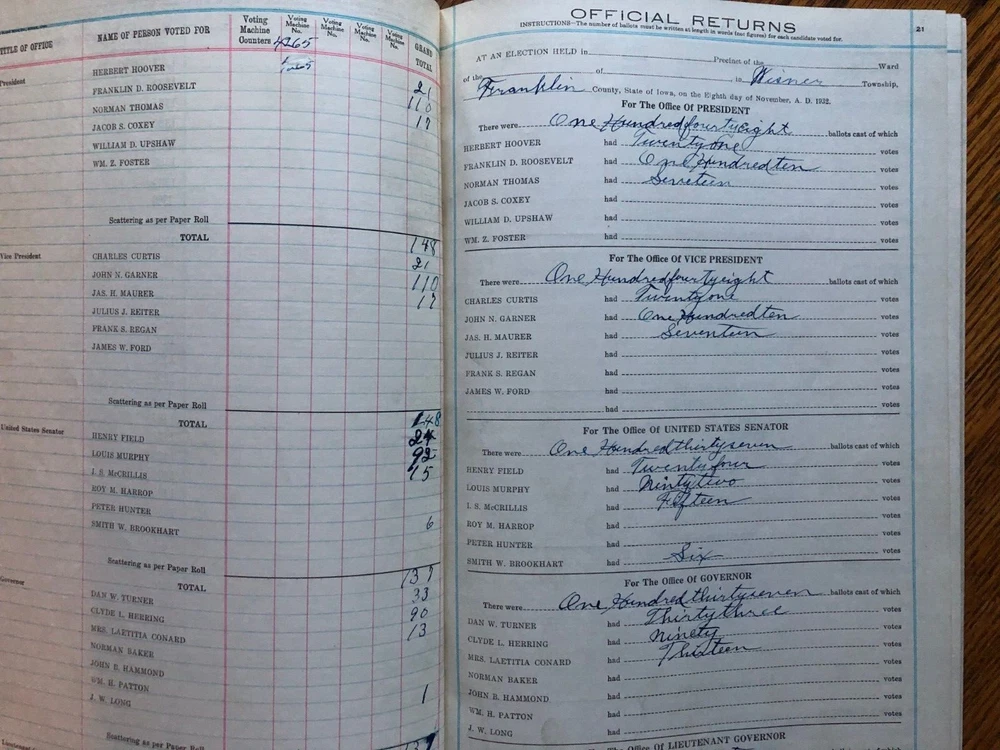 TITLE OF OFFICE NAME OF PERSON VOTED FOR Voting Machine Counters Voting Machine No. Voting Machine No. Voting Machine No. Voting Machine No. GRAND TOTAL
4265
President HERBERT HOOVER 21
FRANKLIN D. ROOSEVELT 110
NORMAN THOMAS 17
JACOB S. COXEY
WILLIAM D. UPSHAW
WM. Z. FOSTER
Scattering as per Paper Roll
TOTAL 148
Vice President CHARLES CURTIS 21
JOHN N. GARNER 110
JAS. H. MAURER 17
JULIUS J. REITER
FRANK S. REGAN
JAMES W. FORD
Scattering as per Paper Roll
TOTAL 148
United States Senator HENRY FIELD 24
LOUIS MURPHY 92
I. S. McCRILLIS 15
ROY M. HARROP
PETER HUNTER
SMITH W. BROOKHART 6
Scattering as per Paper Roll
TOTAL 137
Governor DAN W. TURNER 33
CLYDE L. HERRING 90
MRS. LAETITIA CONARD 13
NORMAN BAKER
JOHN B. HAMMOND
WM. H. PATTON
J. W. LONG 1
Scattering as per Paper Roll
137
OFFICIAL RETURNS
21
INSTRUCTIONS—The number of ballots must be written at length in words (not figures) for each candidate voted for.
AT AN ELECTION HELD in Precinct of the Ward
of the of in Wisner Township,
Franklin County, State of Iowa, on the Eighth day of November, A. D. 1932.
For The Office Of PRESIDENT
There were One Hundred fourty eight ballots cast of which
HERBERT HOOVER had Twenty one votes
FRANKLIN D. ROOSEVELT had One Hundred ten votes
NORMAN THOMAS had Seveteen votes
JACOB S. COXEY had votes
WILLIAM D. UPSHAW had votes
WM. Z. FOSTER had votes
For The Office Of VICE PRESIDENT
There were One Hundred fourty eight ballots cast of which
CHARLES CURTIS had Twenty one votes
JOHN N. GARNER had One Hundred ten votes
JAS. H. MAURER had Seventeen votes
JULIUS J. REITER had votes
FRANK S. REGAN had votes
JAMES W. FORD had votes
had votes
For The Office Of UNITED STATES SENATOR
There were One Hundred thirty seven ballots cast of which
HENRY FIELD had Twenty four votes
LOUIS MURPHY had Ninety two votes
I. S. McCRILLIS had Fifteen votes
ROY M. HARROP had votes
PETER HUNTER had votes
SMITH W. BROOKHART had Six votes
For The Office Of GOVERNOR
There were One Hundred thirty seven ballots cast of which
DAN W. TURNER had Thirty three votes
CLYDE L. HERRING had Ninety votes
MRS. LAETITIA CONARD had Thirteen votes
NORMAN BAKER had votes
JOHN B. HAMMOND had votes
WM. H. PATTON had votes
J. W. LONG had votes
For The Office Of LIEUTENANT GOVERNOR